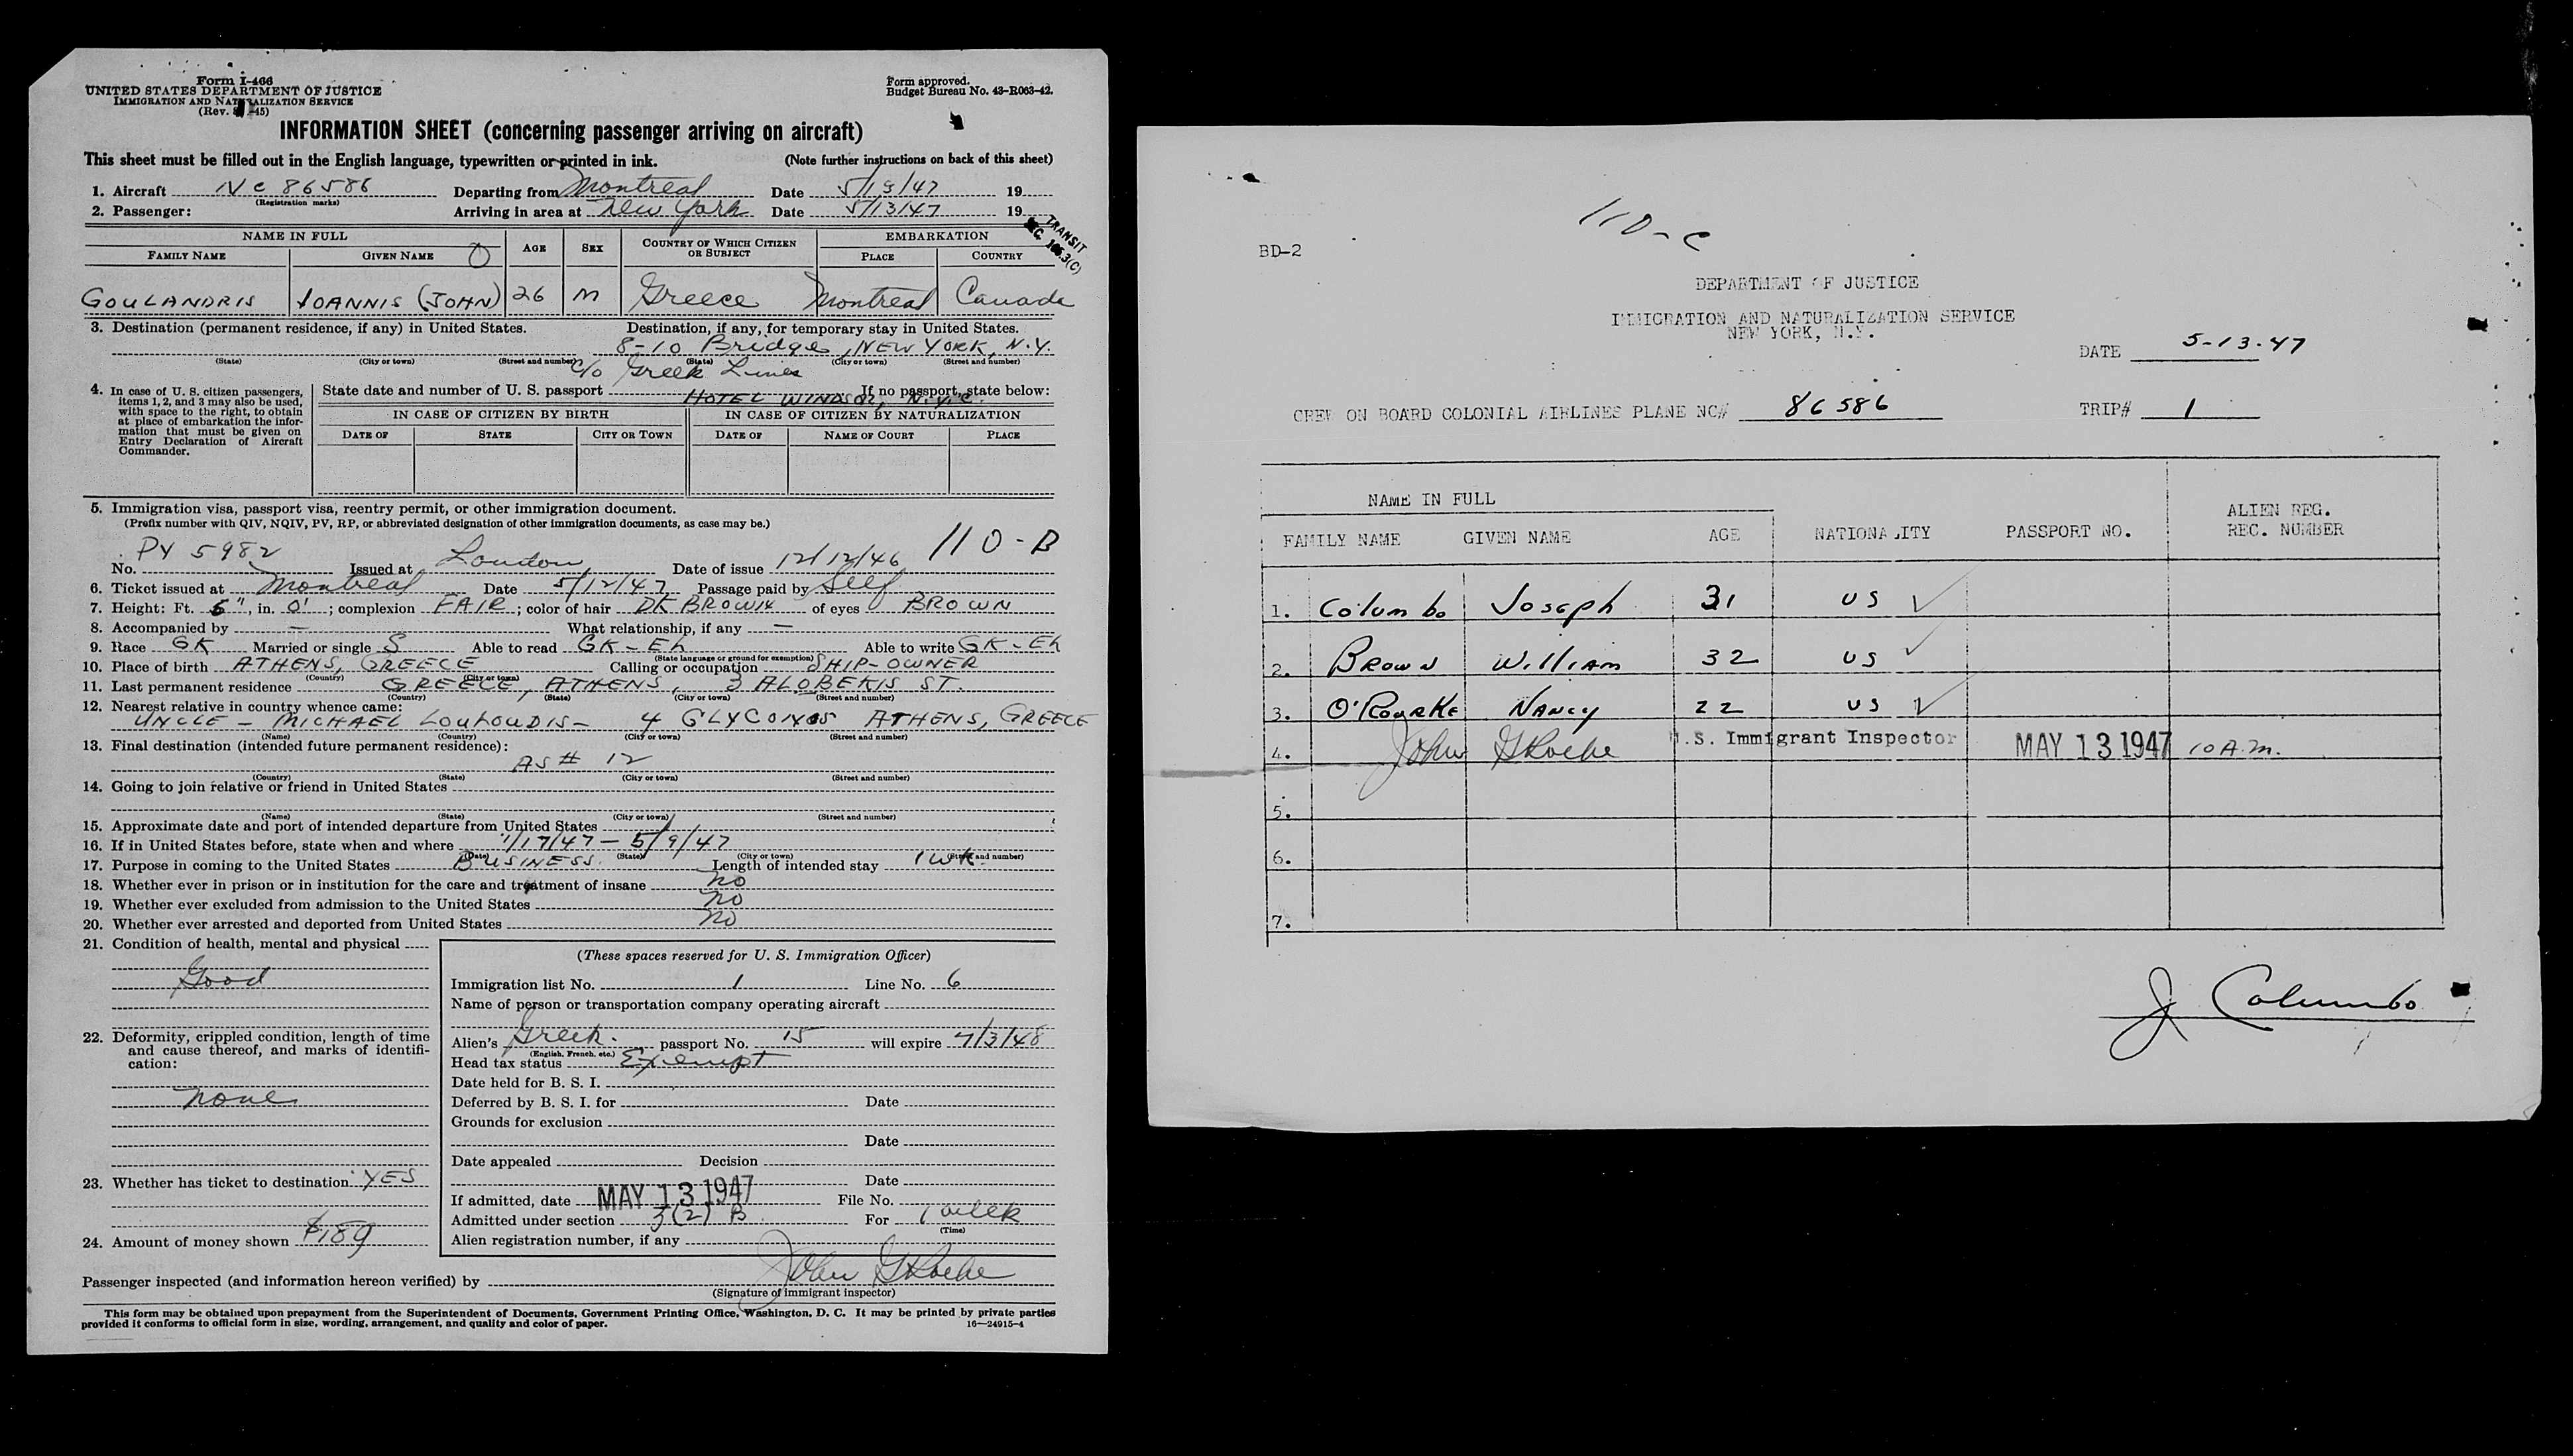 Form I-466
UNITED STATES DEPARTMENT OF JUSTICE
IMMIGRATION AND NATURALIZATION SERVICE
(Rev. -45)
Form approved.
Budget Bureau No. 43-R063-42.
INFORMATION SHEET (concerning passenger arriving on aircraft)
This sheet must be filled out in the English language, typewritten or printed in ink. (Note further instructions on back of this sheet)
1. Aircraft NC 86586 Departing from Montreal Date 5/13/47 19
(Registration marks)
2. Passenger: Arriving in area at New York Date 5/13/47 19
TRANSIT
SEC. 105.3(C)
NAME IN FULL AGE SEX COUNTRY OF WHICH CITIZEN OR SUBJECT EMBARKATION
FAMILY NAME GIVEN NAME PLACE COUNTRY
GOULANDRIS IOANNIS (JOHN) 26 M Greece Montreal Canada
3. Destination (permanent residence, if any) in United States. Destination, if any, for temporary stay in United States.
8-10 Bridge, NEW YORK, N.Y.
(State) (City or town) (Street and number) (State) (City or town) (Street and number)
c/o Greek Lines
4. In case of U. S. citizen passengers, items 1, 2, and 3 may also be used, with space to the right, to obtain at place of embarkation the information that must be given on Entry Declaration of Aircraft Commander.
State date and number of U. S. passport If no passport, state below:
HOTEL WINDSOR, N.Y.C.
IN CASE OF CITIZEN BY BIRTH IN CASE OF CITIZEN BY NATURALIZATION
DATE OF STATE CITY OR TOWN DATE OF NAME OF COURT PLACE
5. Immigration visa, passport visa, reentry permit, or other immigration document.
(Prefix number with QIV, NQIV, PV, RP, or abbreviated designation of other immigration documents, as case may be.)
110-B
No. PV 5982 Issued at London Date of issue 12/12/46
6. Ticket issued at Montreal Date 5/12/47 Passage paid by Self
7. Height: Ft. 5", in. 0'; complexion FAIR; color of hair DK BROWN of eyes BROWN
8. Accompanied by — What relationship, if any —
9. Race GK Married or single S Able to read GK-Eh Able to write GK-Eh
(State language or ground for exemption)
10. Place of birth ATHENS, GREECE Calling or occupation SHIP-OWNER
(Country) (City or town)
11. Last permanent residence GREECE, ATHENS, 3 ALOBEKIS ST.
(Country) (State) (City or town) (Street and number)
12. Nearest relative in country whence came:
UNCLE - MICHAEL LOUKOUDIS- 4 GLYCONOS ATHENS, GREECE
(Name) (Country) (City or town) (Street and number)
13. Final destination (intended future permanent residence):
AS # 12
(Country) (State) (City or town) (Street and number)
14. Going to join relative or friend in United States
(Name) (State) (City or town) (Street and number)
15. Approximate date and port of intended departure from United States
16. If in United States before, state when and where 1/17/47 - 5/9/47
(Date) (State) (City or town) (Street and number)
17. Purpose in coming to the United States BUSINESS. Length of intended stay 1 WK.
18. Whether ever in prison or in institution for the care and treatment of insane no
19. Whether ever excluded from admission to the United States no
20. Whether ever arrested and deported from United States no
21. Condition of health, mental and physical
Good
22. Deformity, crippled condition, length of time and cause thereof, and marks of identification:
none
23. Whether has ticket to destination YES
24. Amount of money shown $189
(These spaces reserved for U. S. Immigration Officer)
Immigration list No. 1 Line No. 6
Name of person or transportation company operating aircraft
Alien's Greek. passport No. 15 will expire 7/3/48
(English, French, etc.)
Head tax status Exempt
Date held for B. S. I.
Deferred by B. S. I. for Date
Grounds for exclusion
Date
Date appealed Decision
Date
If admitted, date MAY 13 1947 File No.
Admitted under section 3(2) B For 1 week
(Time)
Alien registration number, if any
Passenger inspected (and information hereon verified) by
(Signature of immigrant inspector)
This form may be obtained upon prepayment from the Superintendent of Documents, Government Printing Office, Washington, D. C. It may be printed by private parties
provided it conforms to official form in size, wording, arrangement, and quality and color of paper.
16—24915-4
110-C
BD-2
DEPARTMENT OF JUSTICE
IMMIGRATION AND NATURALIZATION SERVICE
NEW YORK, N.Y.
DATE 5-13-47
CREW ON BOARD COLONIAL AIRLINES PLANE NC# 86586 TRIP# 1
NAME IN FULL
FAMILY NAME GIVEN NAME AGE NATIONALITY PASSPORT NO. ALIEN REG. REC. NUMBER
1. Columbo Joseph 31 US
2. Brown William 32 US
3. O'Rourke Nancy 22 US
4. John U.S. Immigrant Inspector MAY 13 1947 10 A.M.
5.
6.
7.
J Columbo